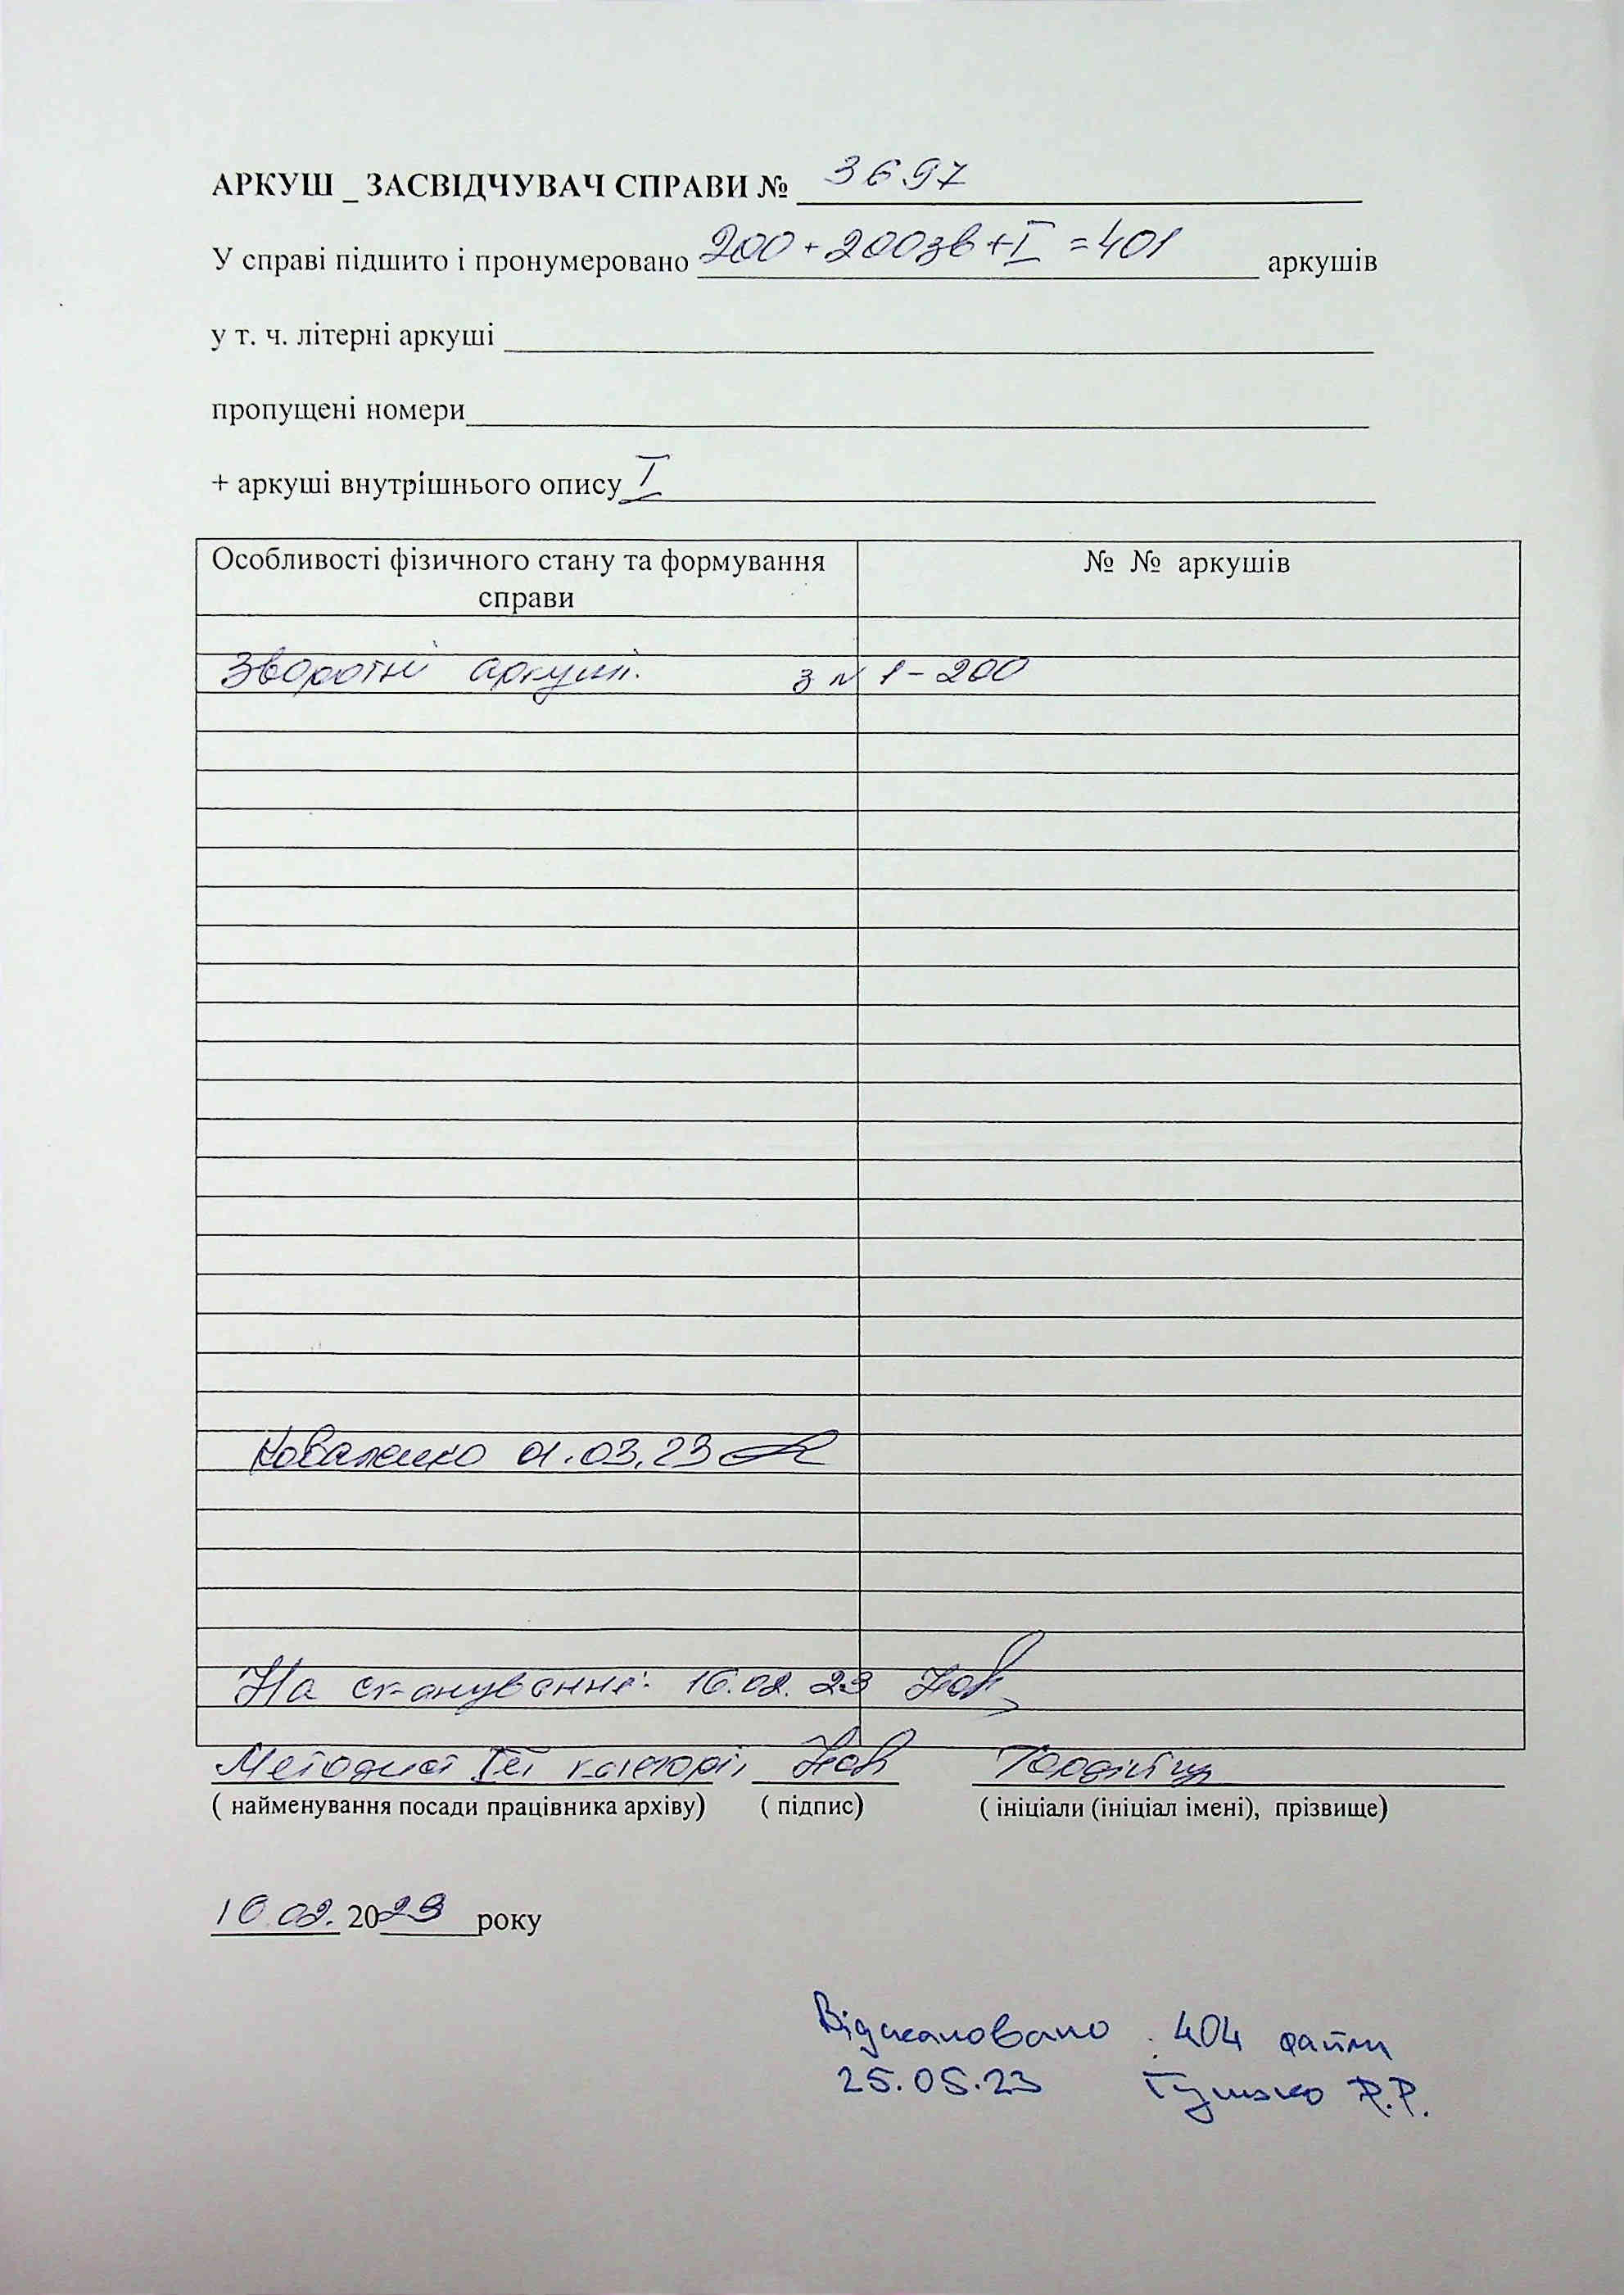 АРКУШ _ ЗАСВІДЧУВАЧ СПРАВИ № 3697
У справі підшито і пронумеровано 200 + 200зв + I = 401 аркушів
у т. ч. літерні аркуші
пропущені номери
+ аркуші внутрішнього опису I
Особливості фізичного стану та формування справи
№ № аркушів
Зворотні аркуші. з N 1-200
Коваленко 01.03.23
На сканування: 16.02.23
Методист категорії
( найменування посади працівника архіву) ( підпис) ( ініціали (ініціал імені), прізвище)
16.02. 2023 року
Відскановано 404 файли
25.05.23 Р.Р.